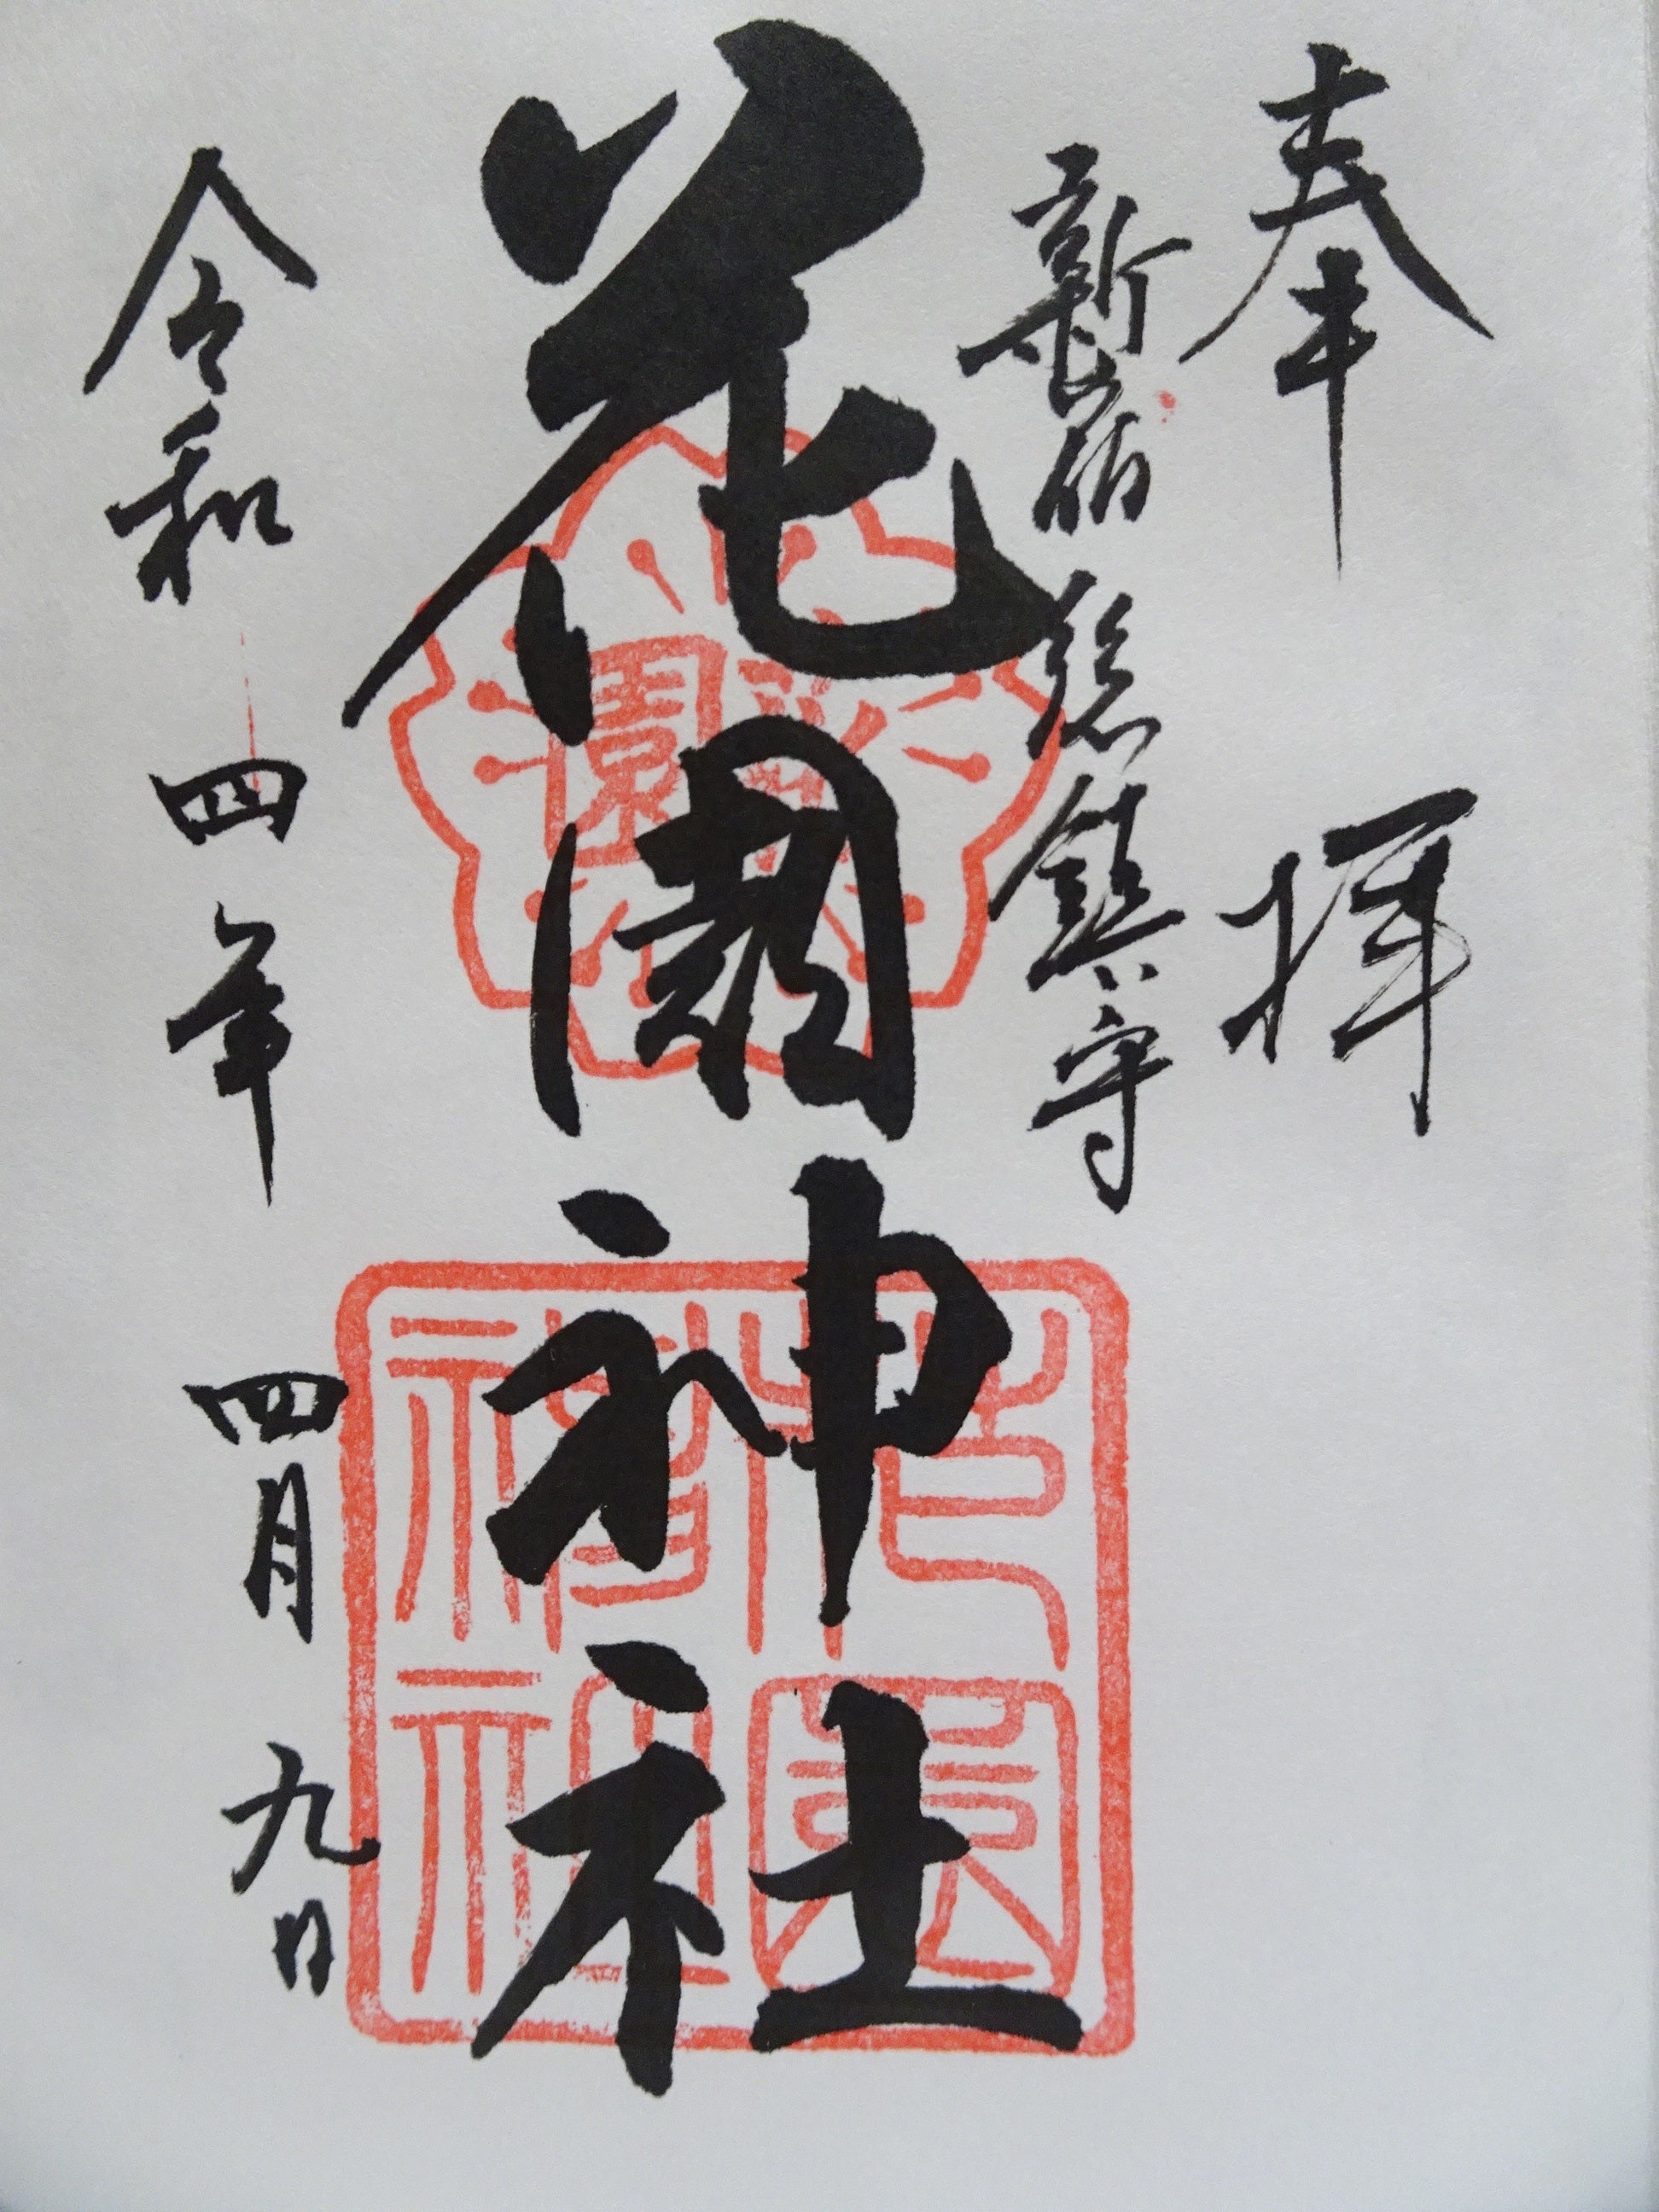 奉拝
新宿総鎮守
花園神社
令和四年四月九日
花園
花園神社